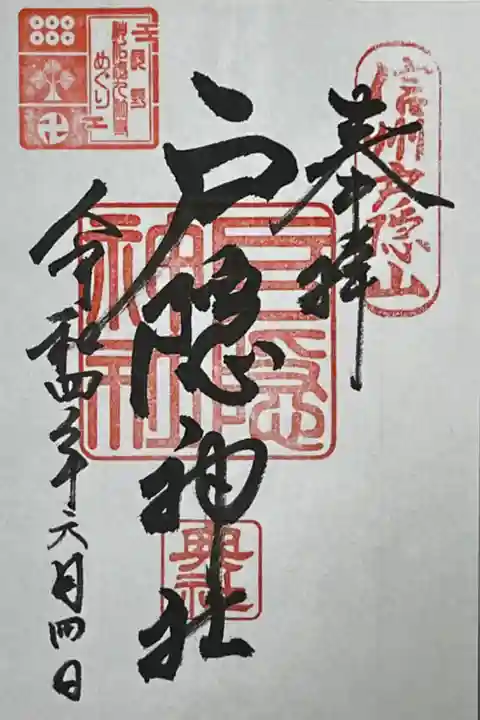 奉拝
信州戸隠山
戸隠神社
戸隠
神社
奥社
令和四年六月四日
めぐり